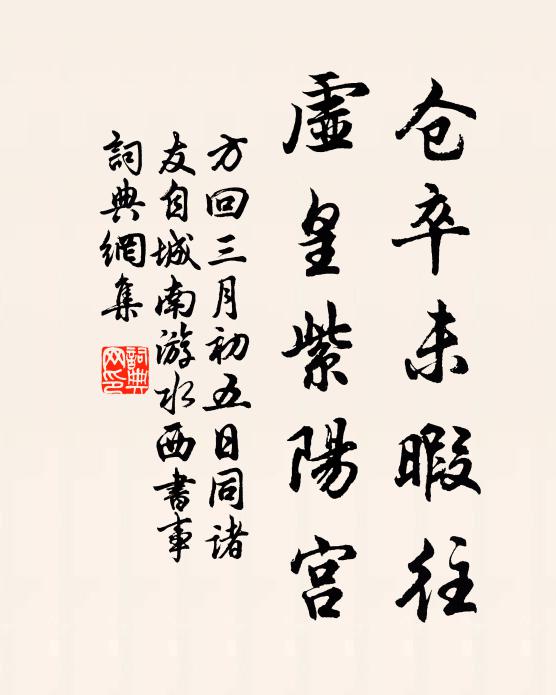 仓卒未暇往
虚皇紫陽宫
方回三月初五日同诸
友自城南游水西書事
詞典網集
詞典
网印